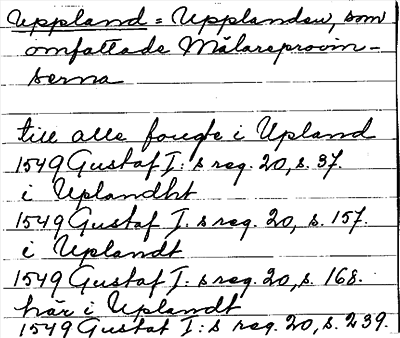 Uppland = Upplanden, som
omfattade Mälareprovin-
serna
till alle fougte i Upland
1549 Gustaf I:s reg. 20, s. 37.
i Uplandht
1549 Gustaf I:s reg. 20, s. 157.
i Uplandt
1549 Gustaf I:s reg. 20, s. 168.
här i Uplandt
1549 Gustaf I:s reg. 20, s. 239.